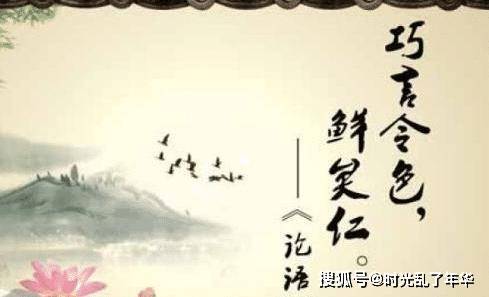 巧言令色，
鲜矣仁。
——《论语
搜狐号@时光乱了年华